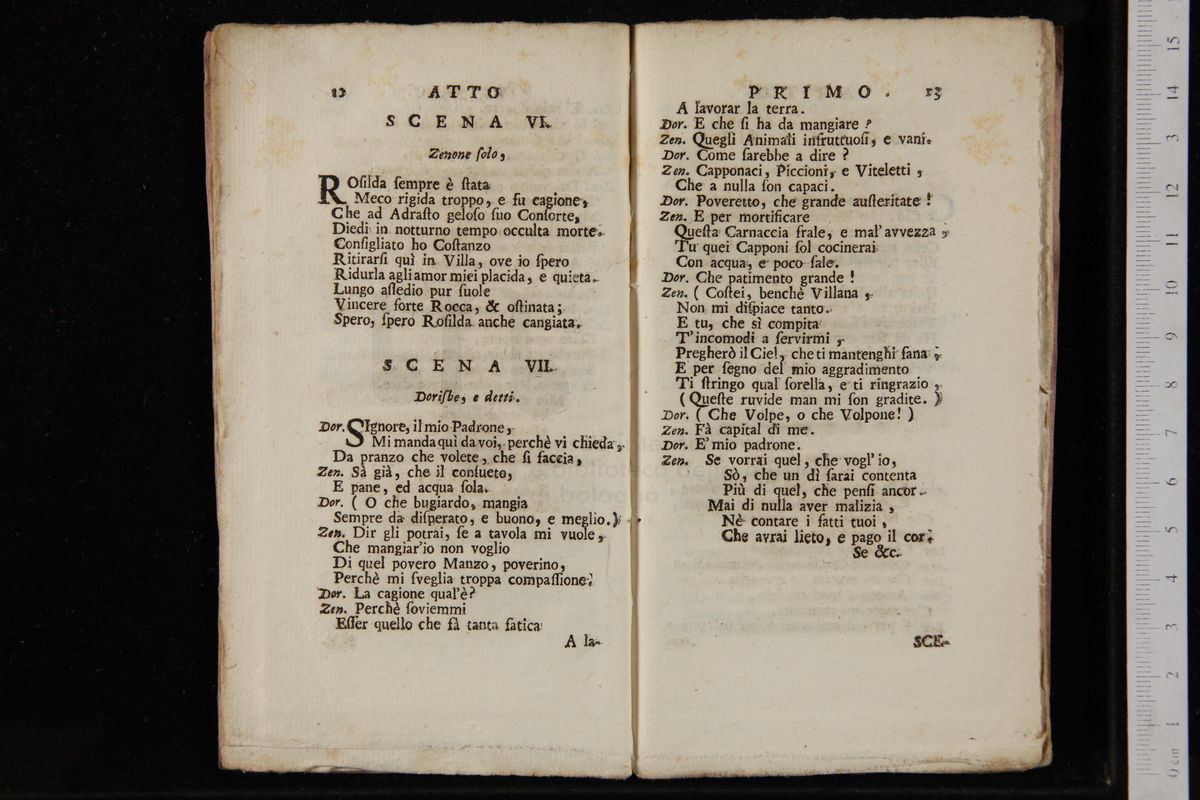 12 ATTO
SCENA VI.
Zenone ſolo,
ROſilda ſempre è ſtata
Meco rigida troppo, e fu cagione,
Che ad Adraſto geloſo ſuo Conſorte,
Diedi in notturno tempo occulta morte.
Conſigliato ho Coſtanzo
Ritirarſi quì in Villa, ove io ſpero
Ridurla agli amor miei placida, e quieta.
Lungo aſſedio pur ſuole
Vincere forte Rocca, & oſtinata;
Spero, ſpero Roſilda anche cangiata.
SCENA VII.
Doriſbe, e detti.
Dor. SIgnore, il mio Padrone,
Mi manda quì da voi, perchè vi chieda,
Da pranzo che volete, che ſi faccia,
Zen. Sà già, che il conſueto,
E pane, ed acqua ſola.
Dor. ( O che bugiardo, mangia
Sempre da diſperato, e buono, e meglio.)
Zen. Dir gli potrai, ſe a tavola mi vuole,
Che mangiar'io non voglio
Di quel povero Manzo, poverino,
Perchè mi ſveglia troppa compaſſione.
Dor. La cagione qual'è?
Zen. Perchè ſoviemmi
Eſſer quello che fà tanta fatica
A la-
PRIMO. 13
A lavorar la terra.
Dor. E che ſi ha da mangiare ?
Zen. Quegli Animali infruttuoſi, e vani.
Dor. Come ſarebbe a dire ?
Zen. Capponaci, Piccioni, e Viteletti,
Che a nulla ſon capaci.
Dor. Poveretto, che grande auſteritate !
Zen. E per mortificare
Queſta Carnaccia frale, e mal'avvezza,
Tu quei Capponi ſol cocinerai
Con acqua, e poco ſale.
Dor. Che patimento grande !
Zen. ( Coſtei, benchè Villana,
Non mi diſpiace tanto.
E tu, che sì compita
T'incomodi a ſervirmi,
Pregherò il Ciel, che ti mantenghi ſana;
E per ſegno del mio aggradimento
Ti ſtringo qual ſorella, e ti ringrazio,
(Queſte ruvide man mi ſon gradite. )
Dor. ( Che Volpe, o che Volpone! )
Zen. Fà capital di me.
Dor. E' mio padrone.
Zen. Se vorrai quel, che vogl'io,
Sò, che un dì ſarai contenta
Più di quel, che penſi ancor.
Mai di nulla aver malizia,
Nè contare i fatti tuoi,
Che avrai lieto, e pago il cor.
Se &c.
SCE-